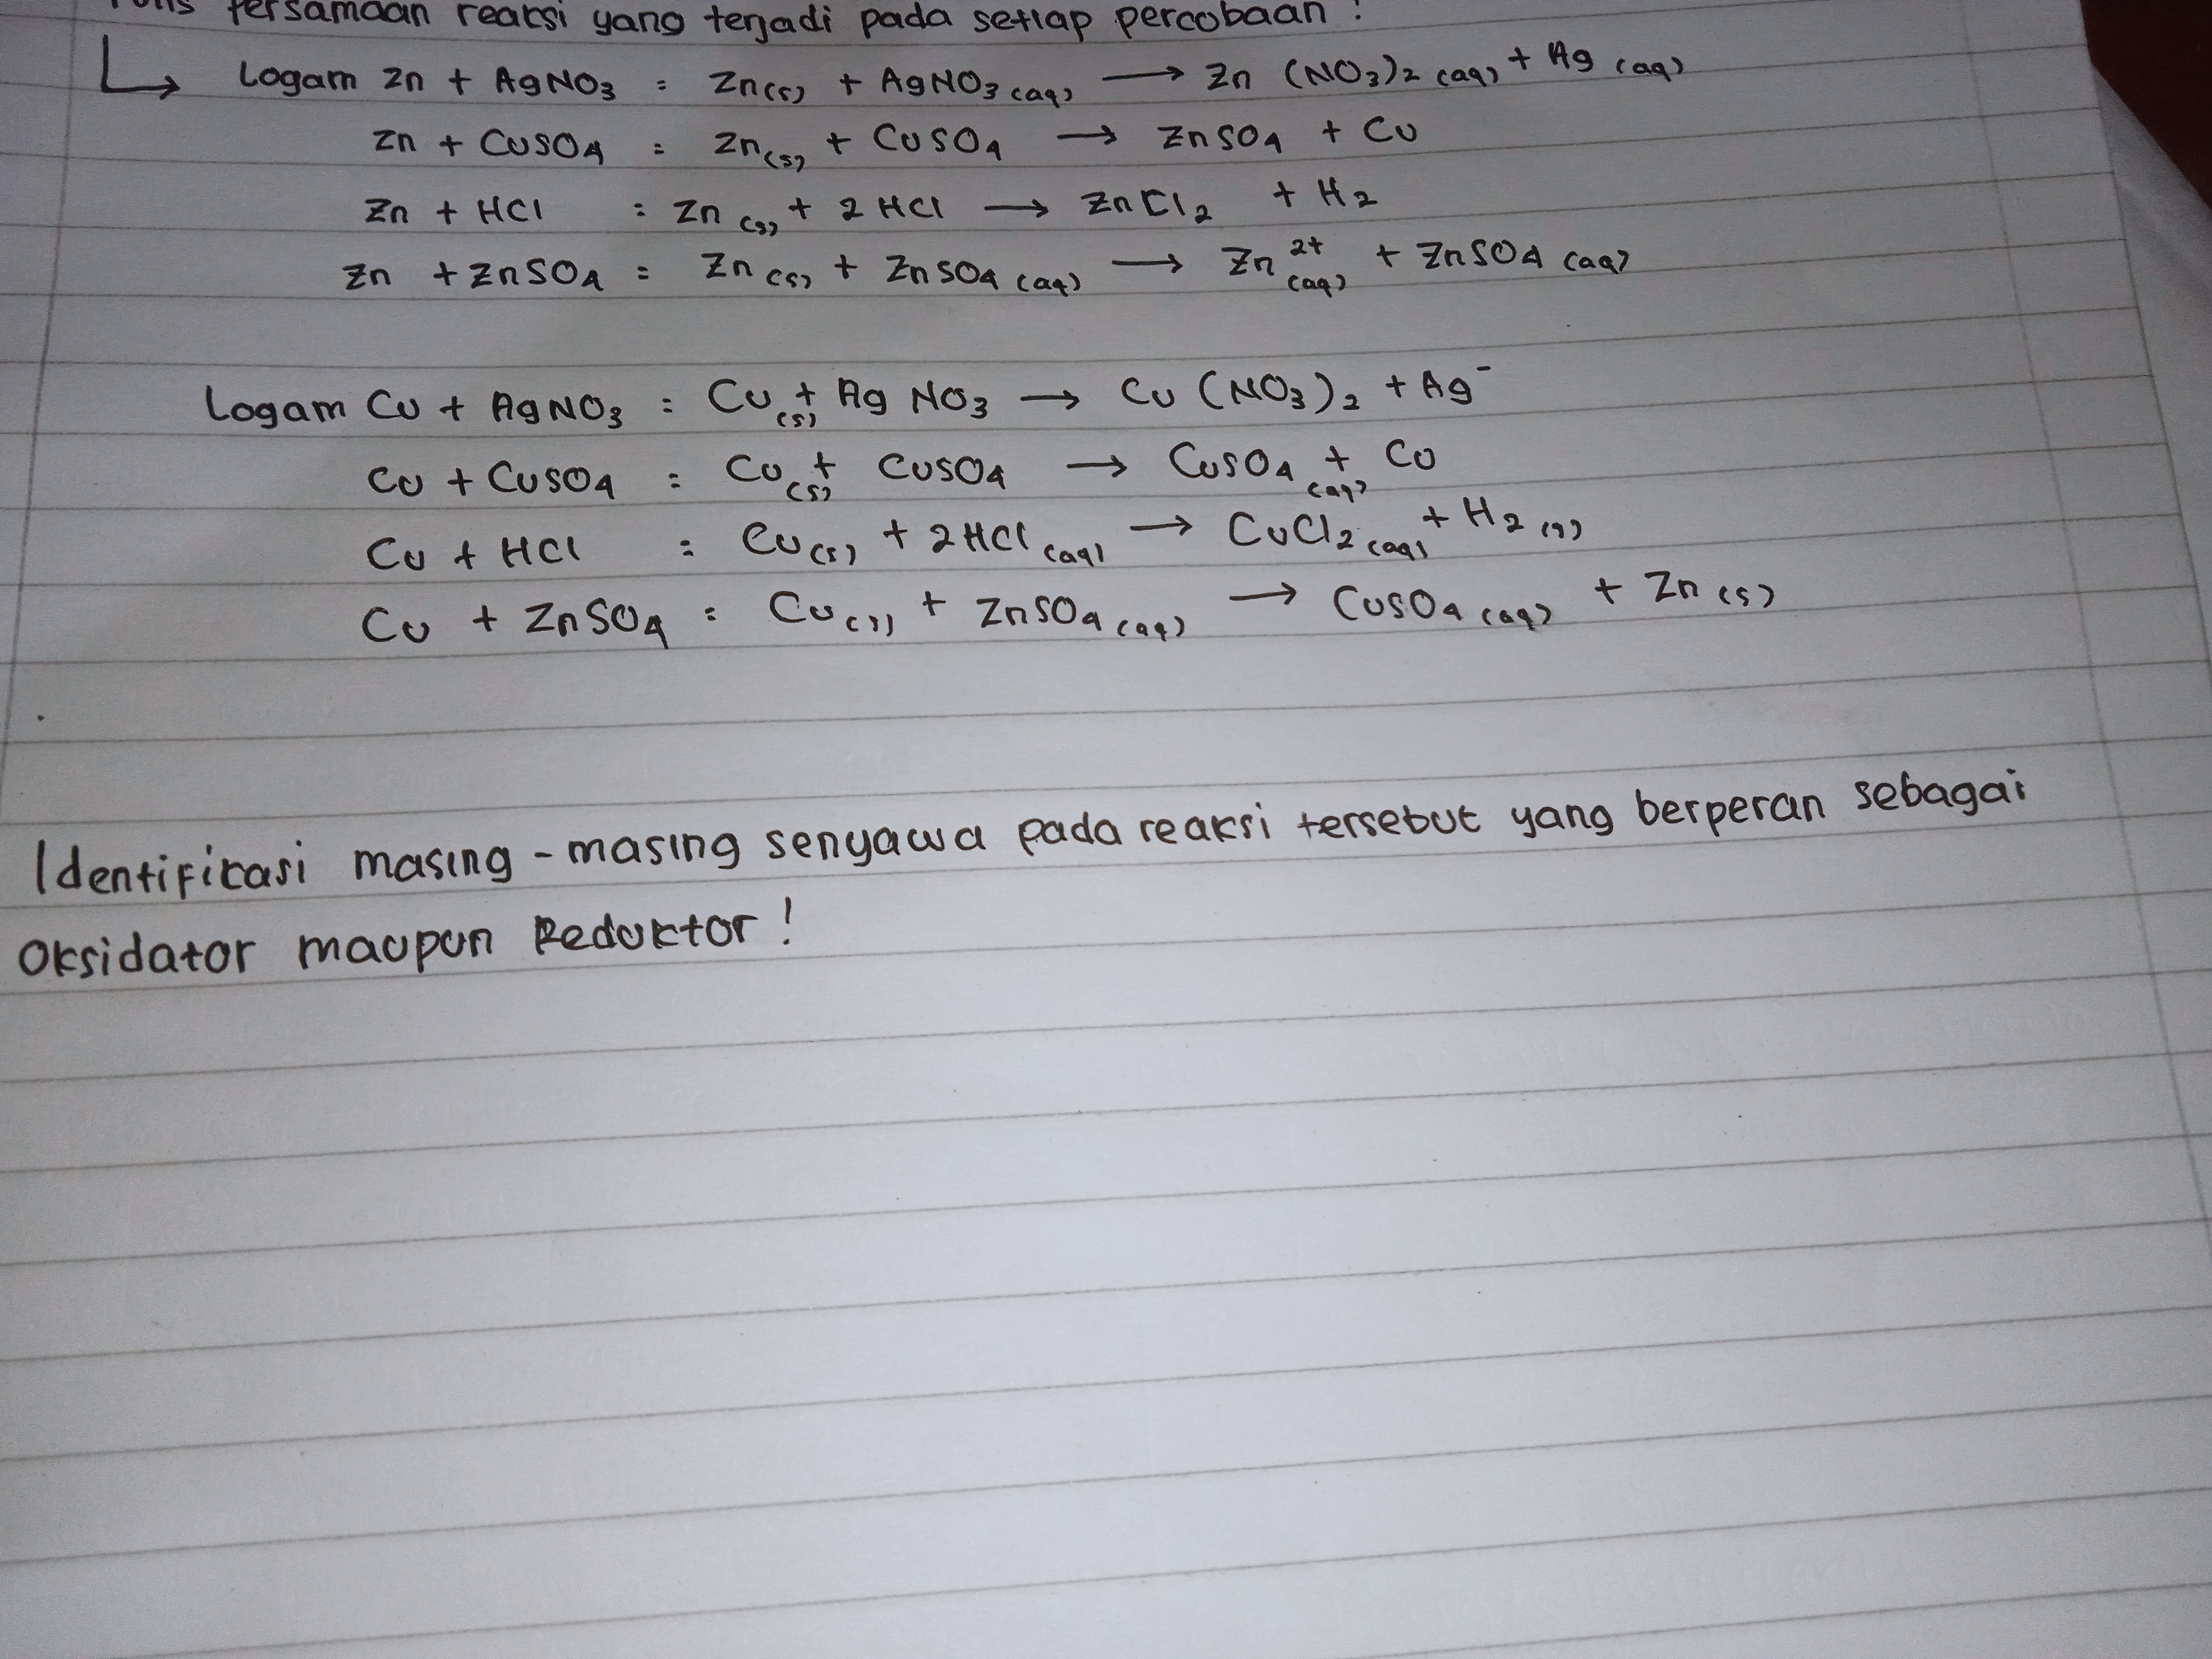 Tulis Persamaan reaksi yang terjadi pada setiap percobaan !
↳ Logam Zn + AgNO3 : Zn(s) + AgNO3 (aq) → Zn (NO3)2 (aq) + Ag (aq)
Zn + CuSO4 : Zn(s) + CuSO4 → ZnSO4 + Cu
Zn + HCl : Zn (s) + 2 HCl → ZnCl2 + H2
Zn + ZnSO4 : Zn (s) + ZnSO4 (aq) → Zn 2+ (aq) + ZnSO4 (aq)
Logam Cu + AgNO3 : Cu (s) + Ag NO3 → Cu (NO3)2 + Ag-
Cu + CuSO4 : Cu (s) + CuSO4 → CuSO4 (aq) + Cu
Cu + HCl : Cu (s) + 2HCl (aq) → CuCl2 (aq) + H2 (g)
Cu + ZnSO4 : Cu (s) + ZnSO4 (aq) → CuSO4 (aq) + Zn (s)
Identifikasi masing - masing senyawa pada reaksi tersebut yang berperan sebagai
Oksidator maupun Reduktor !